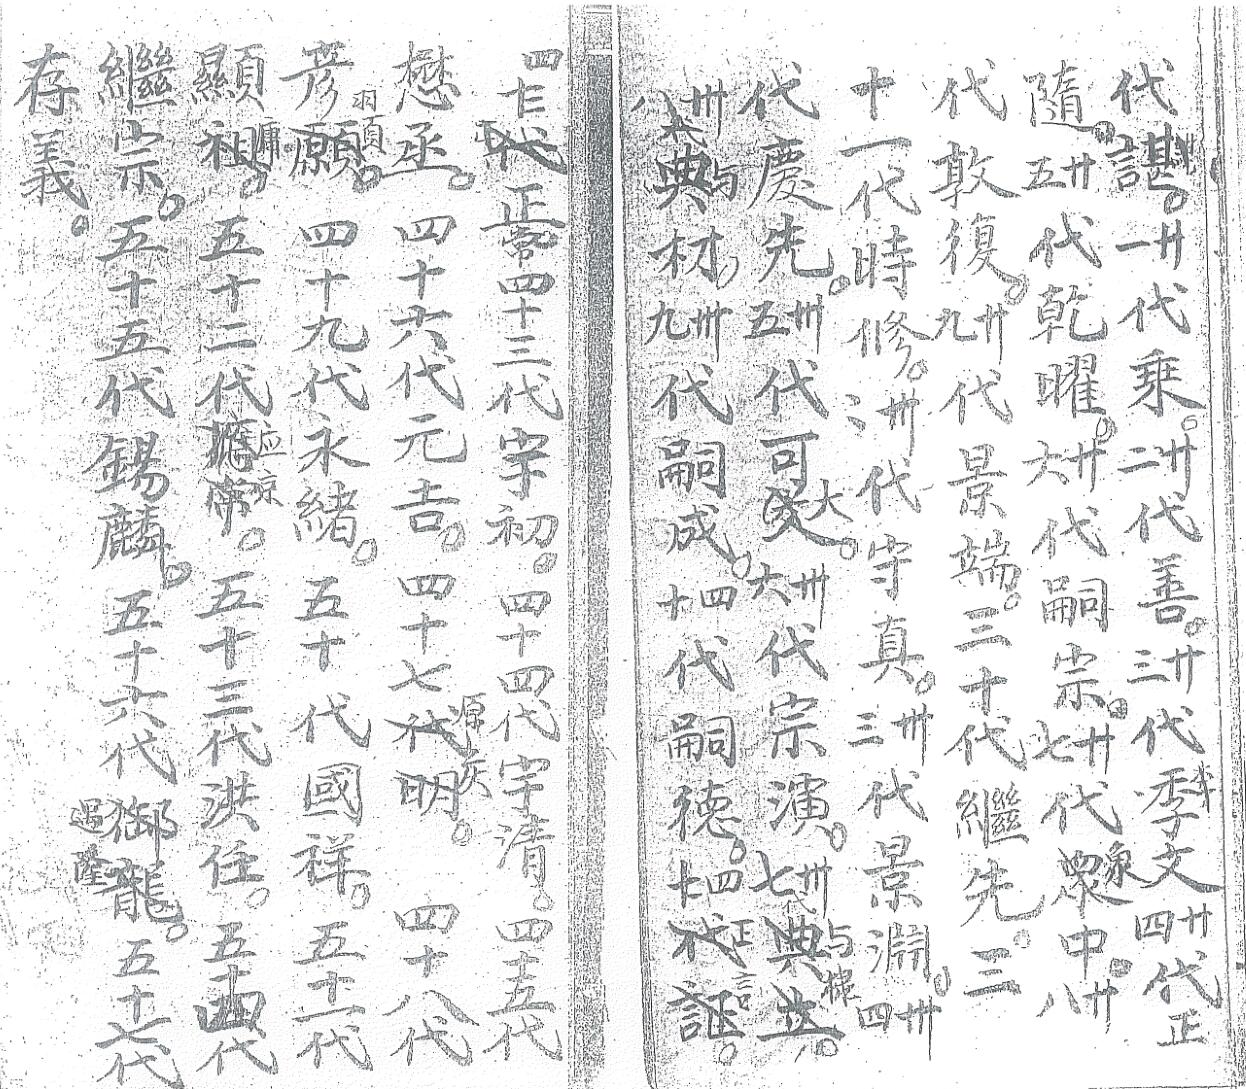 代諶。廿一代乗。廿二代善。廿三代季文廿四代正
隨。廿五代乾曜。廿六代嗣宗。廿七代象中。廿八
代敦復。廿九代景端。三十代繼先。三
十一代時修。卅二代守真。卅三代景淵。卅四
代慶先。卅五代可大。卅六代宗演。卅七代与棣。
卅八代与材。卅九代嗣成。四十代嗣德。四十一代正言。
四十二代正常四十三代宇初。四十四代宇清。四十五代
懋丞。四十六代元吉。四十七代玄慶。四十八代
彦頨。四十九代永緒。五十代國祥。五十一代
顯庸。五十二代应京。五十三代洪任。五十四代
繼宗。五十五代錫麟。五十六代遇隆。五十七代
存義。